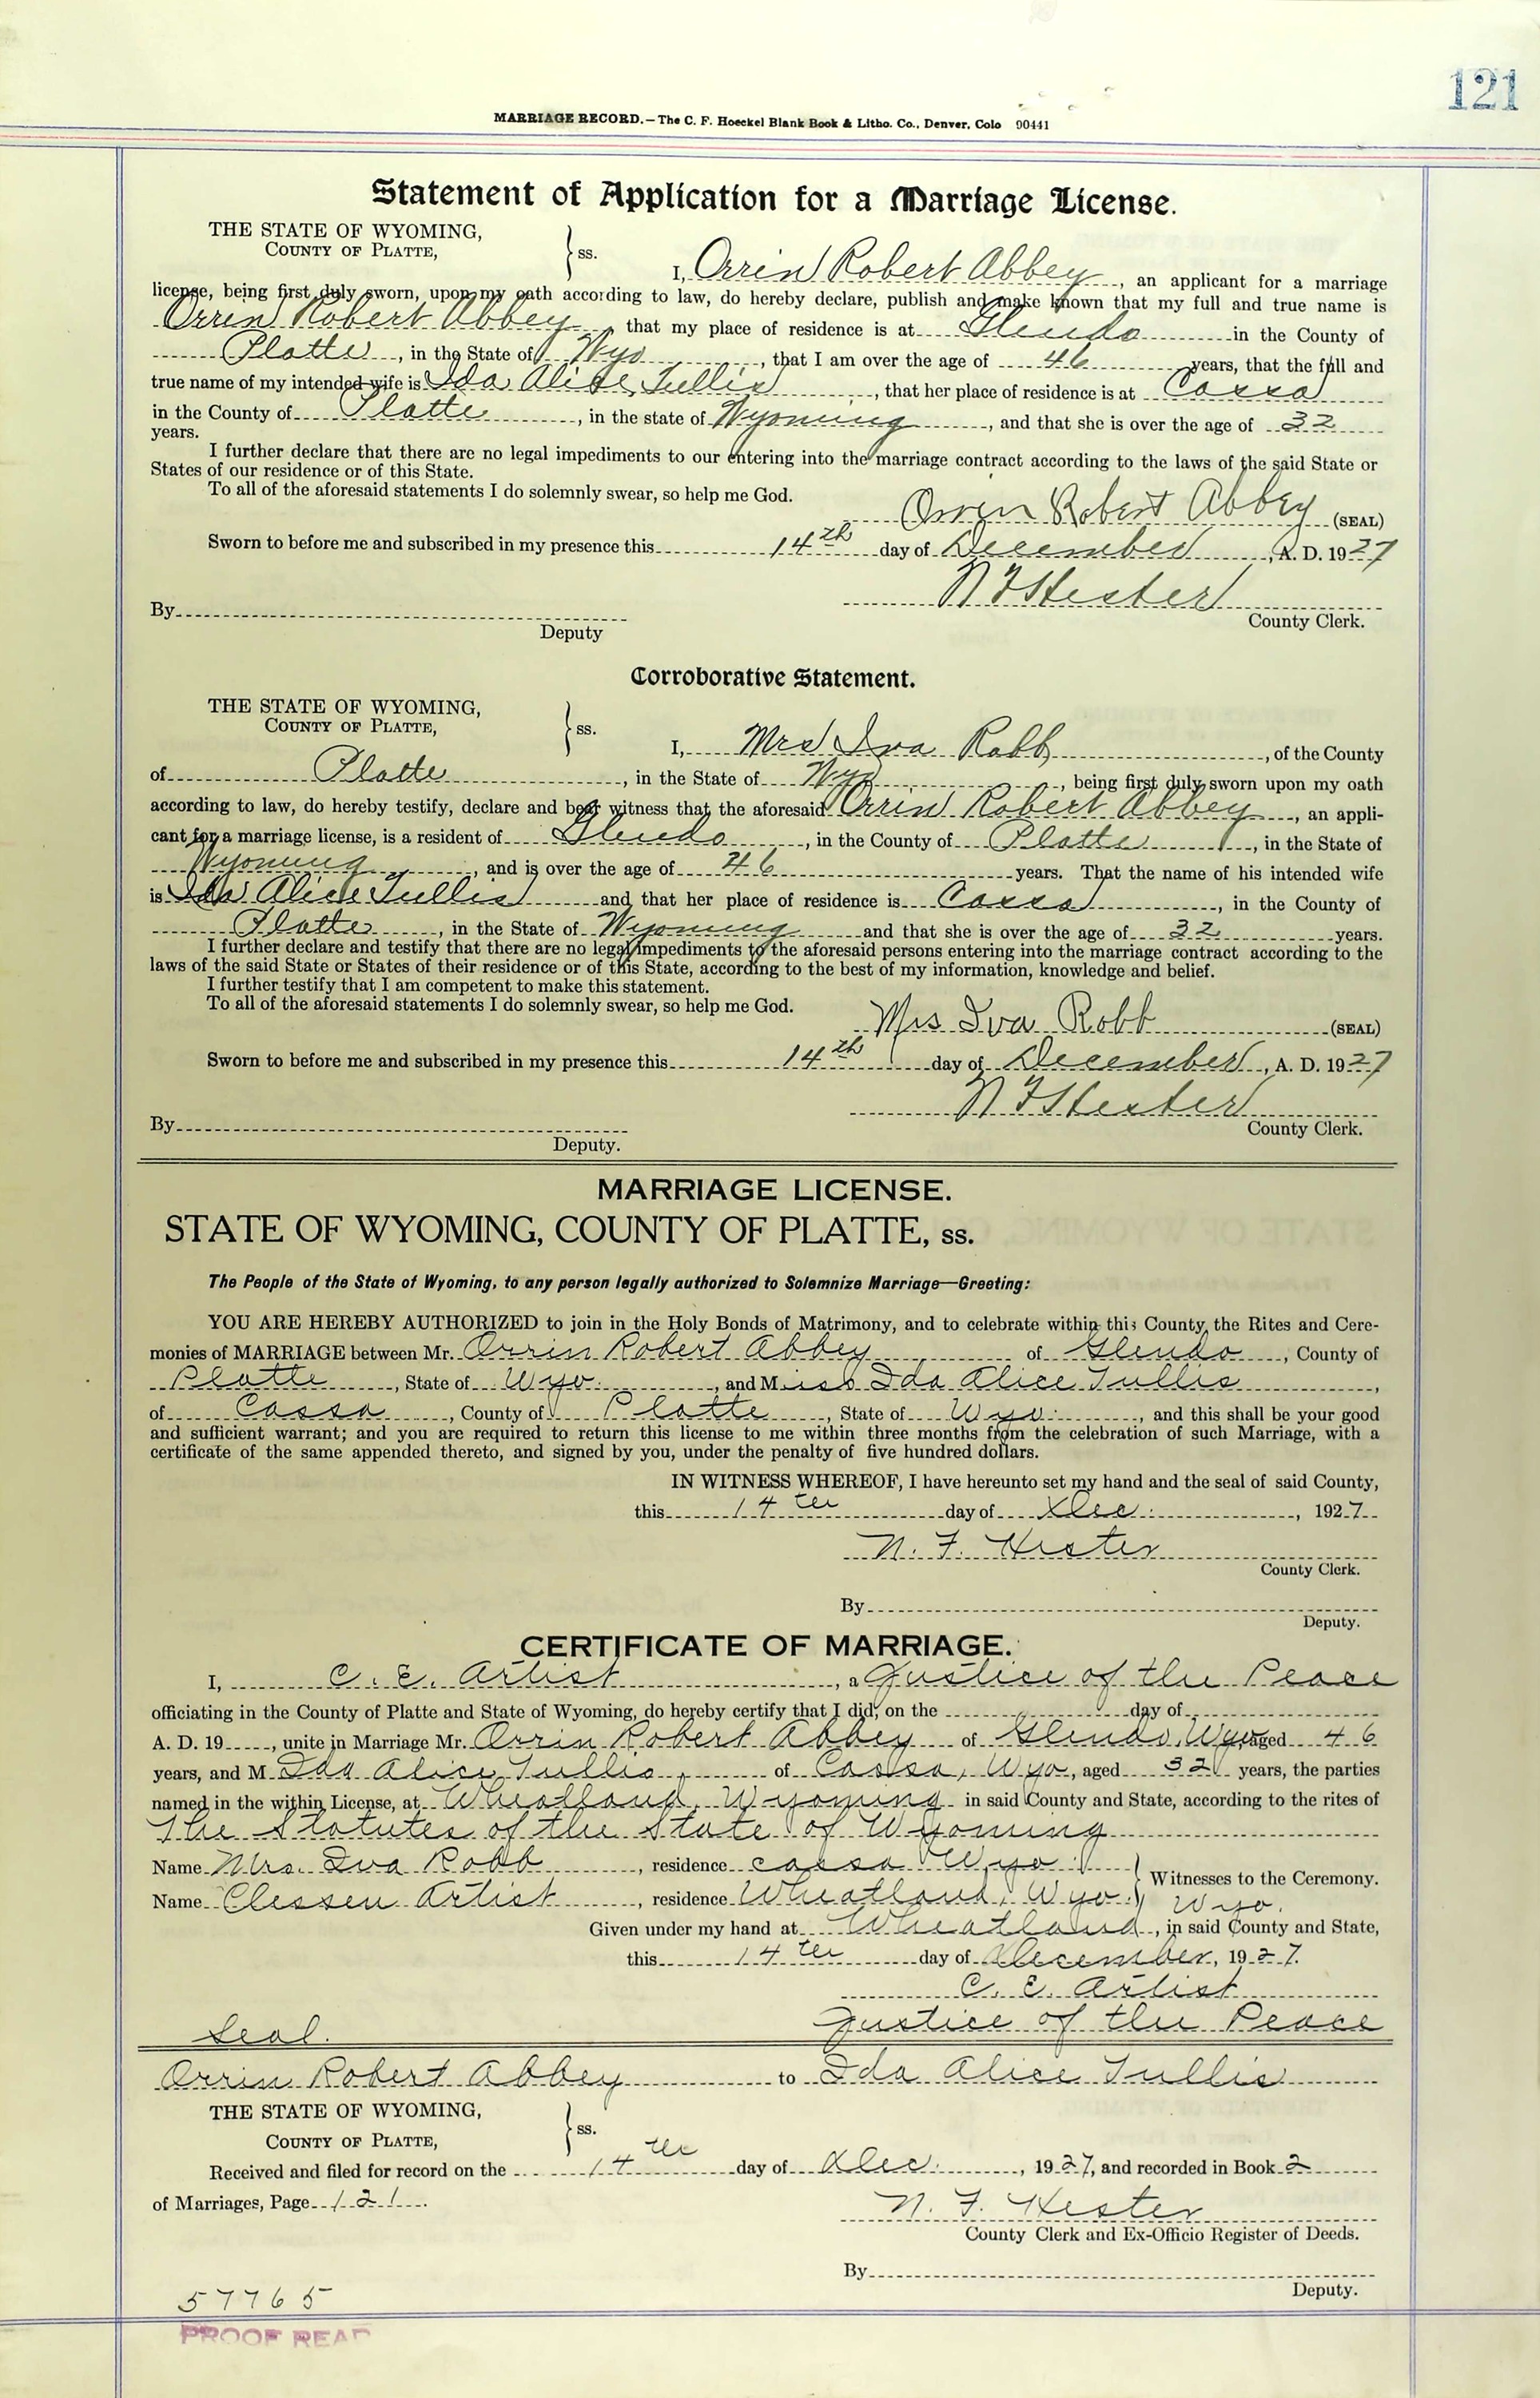 121
MARRIAGE RECORD.—The C. F. Hoeckel Blank Book & Litho. Co., Denver, Colo 90441
Statement of Application for a Marriage License.
THE STATE OF WYOMING,
COUNTY OF PLATTE, } ss.
I, Orrin Robert Abbey, an applicant for a marriage
license, being first duly sworn, upon my oath according to law, do hereby declare, publish and make known that my full and true name is
Orrin Robert Abbey, that my place of residence is at Glendo in the County of
Platte, in the State of Wyo, that I am over the age of 46 years, that the full and
true name of my intended wife is Ida Alice Tullis, that her place of residence is at Cassa
in the County of Platte, in the state of Wyoming, and that she is over the age of 32
years.
I further declare that there are no legal impediments to our entering into the marriage contract according to the laws of the said State or
States of our residence or of this State.
To all of the aforesaid statements I do solemnly swear, so help me God.
Orrin Robert Abbey (SEAL)
Sworn to before me and subscribed in my presence this 14th day of December, A. D. 1927
N F Hester
By
County Clerk.
Deputy
Corroborative Statement.
THE STATE OF WYOMING,
COUNTY OF PLATTE, } ss.
I, Mrs Iva Robb, of the County
of Platte, in the State of Wyo, being first duly sworn upon my oath
according to law, do hereby testify, declare and bear witness that the aforesaid Orrin Robert Abbey, an appli-
cant for a marriage license, is a resident of Glendo, in the County of Platte, in the State of
Wyoming, and is over the age of 46 years. That the name of his intended wife
is Ida Alice Tullis and that her place of residence is Cassa, in the County of
Platte, in the State of Wyoming and that she is over the age of 32 years.
I further declare and testify that there are no legal impediments to the aforesaid persons entering into the marriage contract according to the
laws of the said State or States of their residence or of this State, according to the best of my information, knowledge and belief.
I further testify that I am competent to make this statement.
To all of the aforesaid statements I do solemnly swear, so help me God.
Mrs Iva Robb (SEAL)
Sworn to before me and subscribed in my presence this 14th day of December, A. D. 1927
N F Hester
By
County Clerk.
Deputy.
MARRIAGE LICENSE.
STATE OF WYOMING, COUNTY OF PLATTE, ss.
The People of the State of Wyoming, to any person legally authorized to Solemnize Marriage—Greeting:
YOU ARE HEREBY AUTHORIZED to join in the Holy Bonds of Matrimony, and to celebrate within this County the Rites and Cere-
monies of MARRIAGE between Mr. Orrin Robert Abbey of Glendo, County of
Platte, State of Wyo., and Miss Ida Alice Tullis,
of Cassa, County of Platte, State of Wyo., and this shall be your good
and sufficient warrant; and you are required to return this license to me within three months from the celebration of such Marriage, with a
certificate of the same appended thereto, and signed by you, under the penalty of five hundred dollars.
IN WITNESS WHEREOF, I have hereunto set my hand and the seal of said County,
this 14th day of Dec., 1927
N. F. Hester
County Clerk.
By
Deputy.
CERTIFICATE OF MARRIAGE.
I, C. E. Artist, a Justice of the Peace
officiating in the County of Platte and State of Wyoming, do hereby certify that I did, on the day of
A. D. 19 , unite in Marriage Mr. Orrin Robert Abbey of Glendo, Wyo, aged 46
years, and M Ida Alice Tullis, of Cassa, Wyo, aged 32 years, the parties
named in the within License, at Wheatland, Wyoming in said County and State, according to the rites of
The Statutes of the State of Wyoming
Name Mrs. Iva Robb, residence Cassa Wyo.
Witnesses to the Ceremony.
Name Clessen Artist, residence Wheatland, Wyo. Wyo.
Given under my hand at Wheatland, in said County and State,
this 14th day of December, 1927.
C. E. Artist
Seal. Justice of the Peace
Orrin Robert Abbey to Ida Alice Tullis
THE STATE OF WYOMING,
COUNTY OF PLATTE, } ss.
Received and filed for record on the 14th day of Dec., 1927, and recorded in Book 2
of Marriages, Page 121.
N. F. Hester
County Clerk and Ex-Officio Register of Deeds.
By
Deputy.
57765
PROOF READ